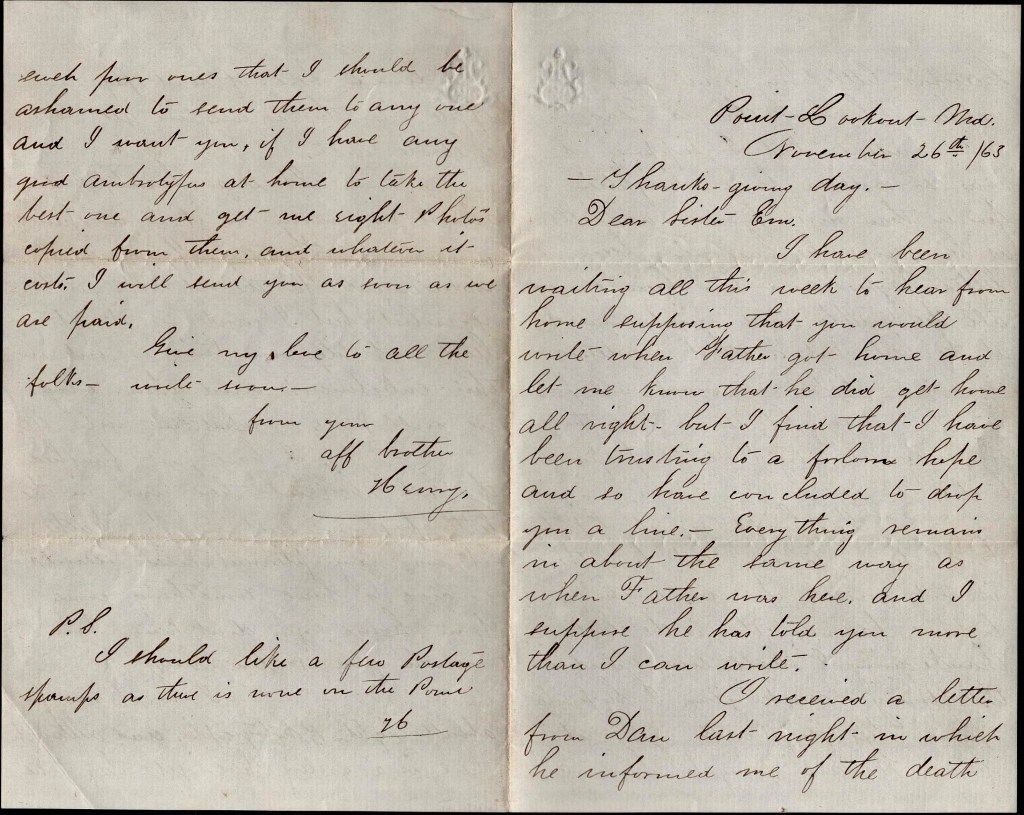 Point Lookout Md.
November 26th /63
- Thanks-giving day. -
Dear Sister Em.
I have been
waiting all this week to hear from
home supposing that you would
write when Father got home and
let me know that he did get home
all right - but I find that I have
been trusting to a forlorn hope
and so have concluded to drop
you a line. - Everything remain
in about the same way as
when Father was here, and I
suppose he has told you more
than I can write.
I received a letter
from Dan last night in which
he informed me of the death
such poor ones that I should be
ashamed to send them to any one
and I want you, if I have any
good ambrotypes at home to take the
best one and get me eight Photos
copied from them, and whatever it
costs, I will send you as soon as we
are paid.
Give my love to all the
folks - write soon -
from your
aff brother
Henry.
P.S.
I should like a few Postage
stamps as there is none on the Point
H